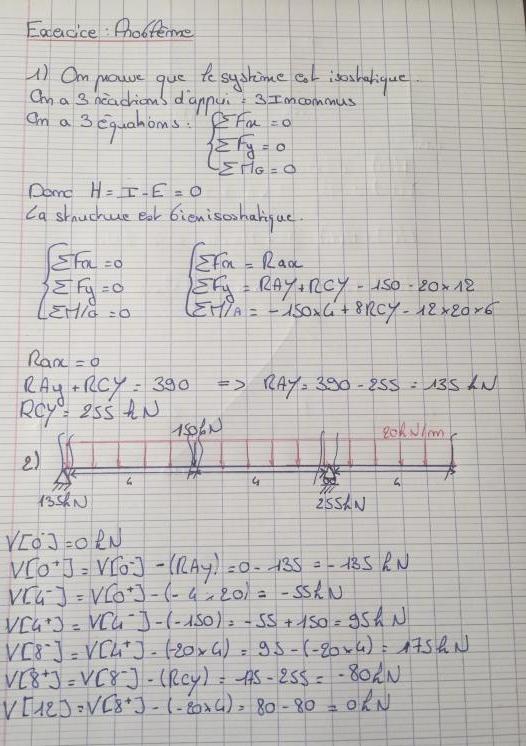 Exercice : Problème
1) On prouve que le système est isostatique.
On a 3 réactions d'appui = 3 Inconnus
On a 3 équations : { ΣFx = 0
ΣFy = 0
ΣMG = 0
Donc H = I - E = 0
La structure est bien isostatique.
{ ΣFx = 0 { ΣFx = Rax
ΣFy = 0 ΣFy = RAY + RCY - 150 - 20×12
ΣM/G = 0 ΣM/A = -150×4 + 8RCY - 12×20×6
Rax = 0
RAy + RCY = 390 => RAY = 390 - 255 = 135 kN
RCY = 255 kN
150kN 20kN/m
2)
4 4 4
135kN 255kN
V[0⁻] = 0 kN
V[0⁺] = V[0⁻] - (RAy) = 0 - 135 = -135 kN
V[4⁻] = V[0⁺] - (-4×20) = -55kN
V[4⁺] = V[4⁻] - (-150) = -55 + 150 = 95kN
V[8⁻] = V[4⁺] - (-20×4) = 95 - (-20×4) = 175kN
V[8⁺] = V[8⁻] - (RCY) = 175 - 255 = -80kN
V[12] = V[8⁺] - (-20×4) = 80 - 80 = 0kN